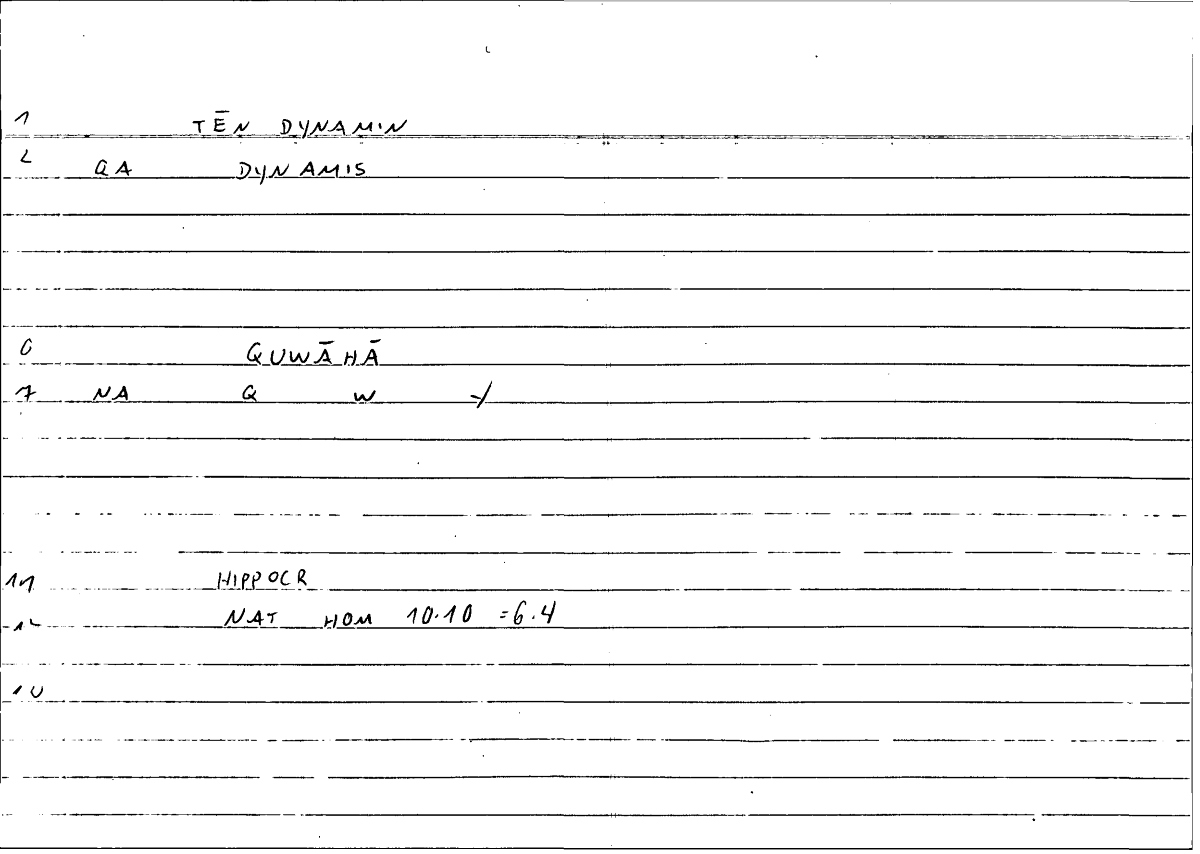 1 TĒN DYNAMIN
2 QA DYNAMIS
6 QUWĀHĀ
7 NA Q W -/
11 HIPPOCR
12 NAT HOM 10.10 =6.4